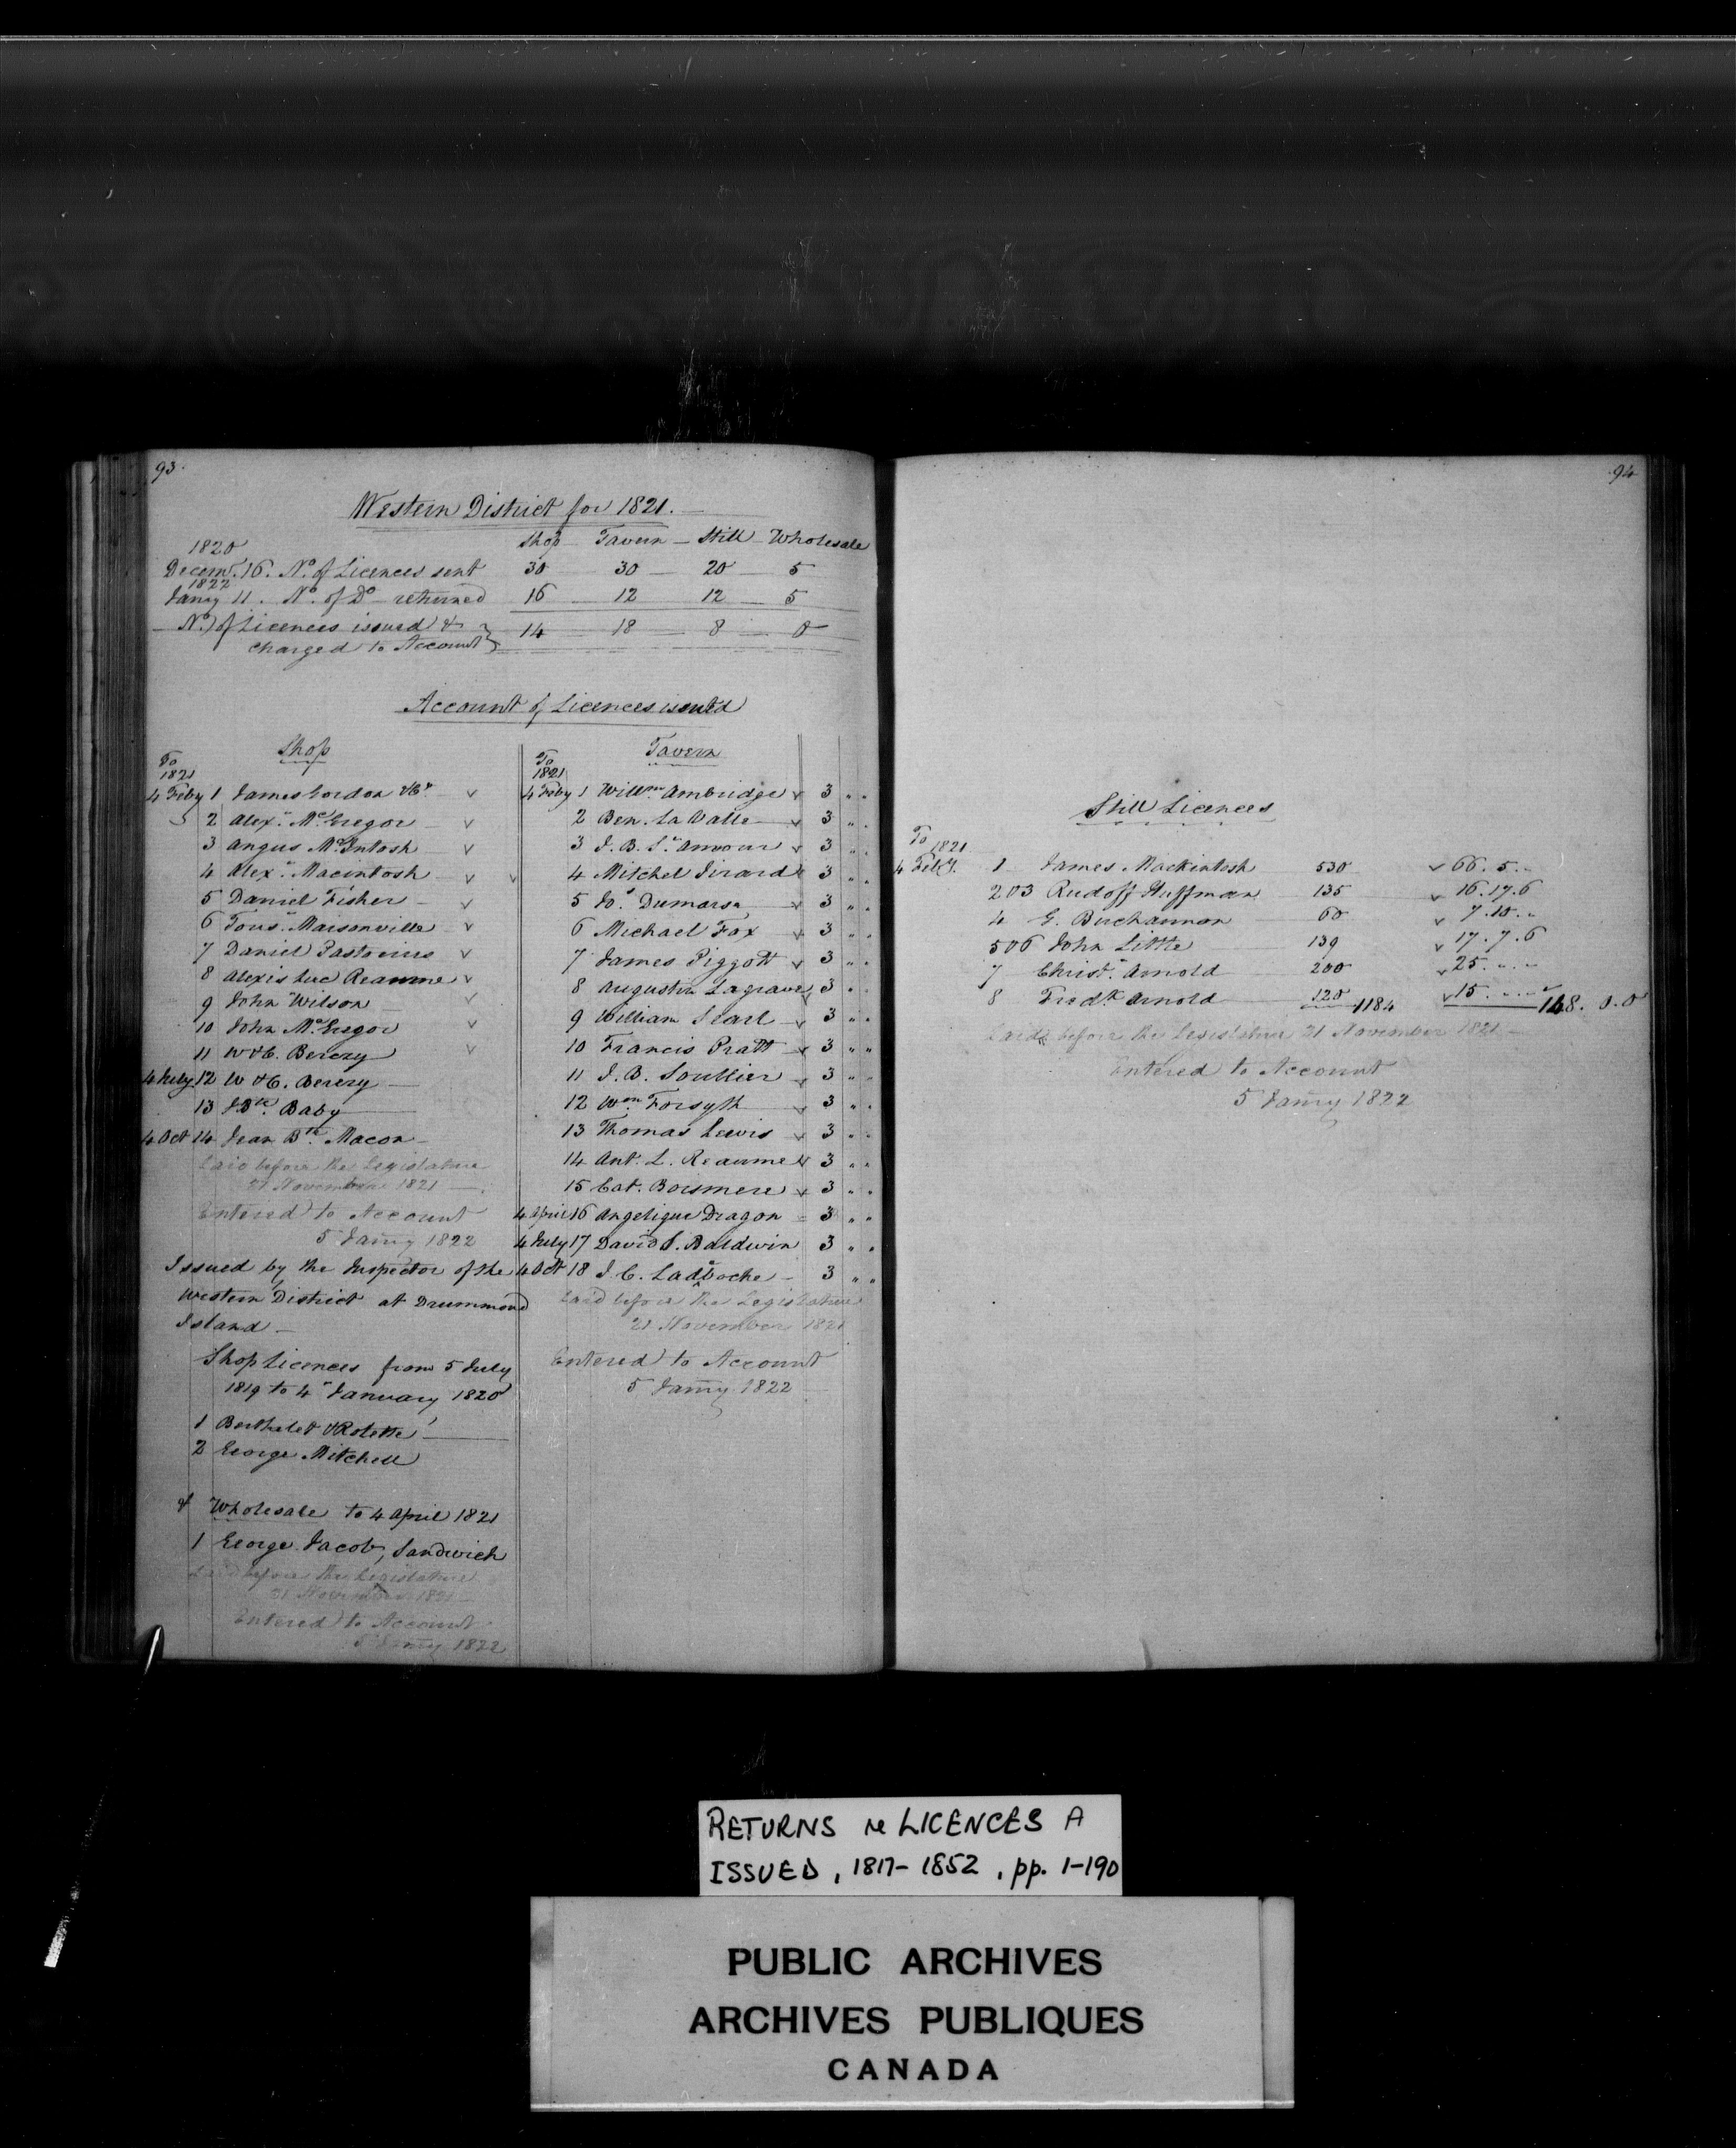 93.
Western District for 1821.
Shop Tavern Still Wholesale
1820
Decemr. 16. No. of Licences sent 30 30 20 5
1822
Jany 11. No. of Do returned 16 12 12 5
No. of Licences issued &
charged to Account 14 18 8 0
Account of Licences issued
Shop
To
1821
4 Feby 1 James Gordon & Co. v
2 Alexr. McGregor v
3 Angus McIntosh v
4 Alexr. Macintosh v
5 Daniel Fisher v
6 Touss. Maisonville v
7 Daniel Pastorius v
8 Alexis Luc Reaume v
9 John Wilson v
10 John McGregor v
11 W & C. Berczy v
4 July 12 W & C. Berczy
13 J Bte. Baby
4 Oct 14 Jean Bte. Macon
Laid before the Legislature
21 November 1821
Entered to Account
5 Jany 1822
Issued by the Inspector of the
Western District at Drummond
Island
Shop Licences from 5 July
1819 to 4 January 1820
1 Berthelet & Rolette
2 George Mitchell
& Wholesale to 4 April 1821
1 George Jacob, Sandwich
Laid before the Legislature
21 November 1821
Entered to Account
5 Jany 1822
Tavern
To
1821
4 Feby 1 Willm. Ambridge v 3 " "
2 Ben. La Valle v 3 " "
3 J. B. St. Amour v 3 " "
4 Mitchel Girard v 3 " "
5 Jo. Dumarsa v 3 " "
6 Michael Fox v 3 " "
7 James Piggott v 3 " "
8 Augustin Lagrave v 3 " "
9 William Searl v 3 " "
10 Francis Pratt v 3 " "
11 J. B. Soullier v 3 " "
12 Wm. Forsyth v 3 " "
13 Thomas Lewis v 3 " "
14 Ant. L. Reaume v 3 " "
15 Cat. Boismere v 3 " "
4 April 16 Angelique Dragon 3 " "
4 July 17 David S. Baldwin 3 " "
4 Oct 18 J. C. 3 " "
Laid before the Legislature
21 November 1821
Entered to Account
5 Jany. 1822
94
Still Licences
To 1821
4 Feby. 1 James Mackintosh 530 v 66. 5. "
2 & 3 Rudoff Huffman 135 v 16. 17. 6
4 G. Buchannon 60 v 7. 10. "
5 & 6 John Little 139 v 17. 7. 6
7 Christ. Arnold 200 v 25. " "
8 Fredk. Arnold 120 1184 v 15. " " 148. 0. 0
Laid before the Legislature 21 November 1821
Entered to Account
5 Jany 1822
RETURNS re LICENCES A
ISSUED, 1817-1852, pp. 1-190
PUBLIC ARCHIVES
ARCHIVES PUBLIQUES
CANADA